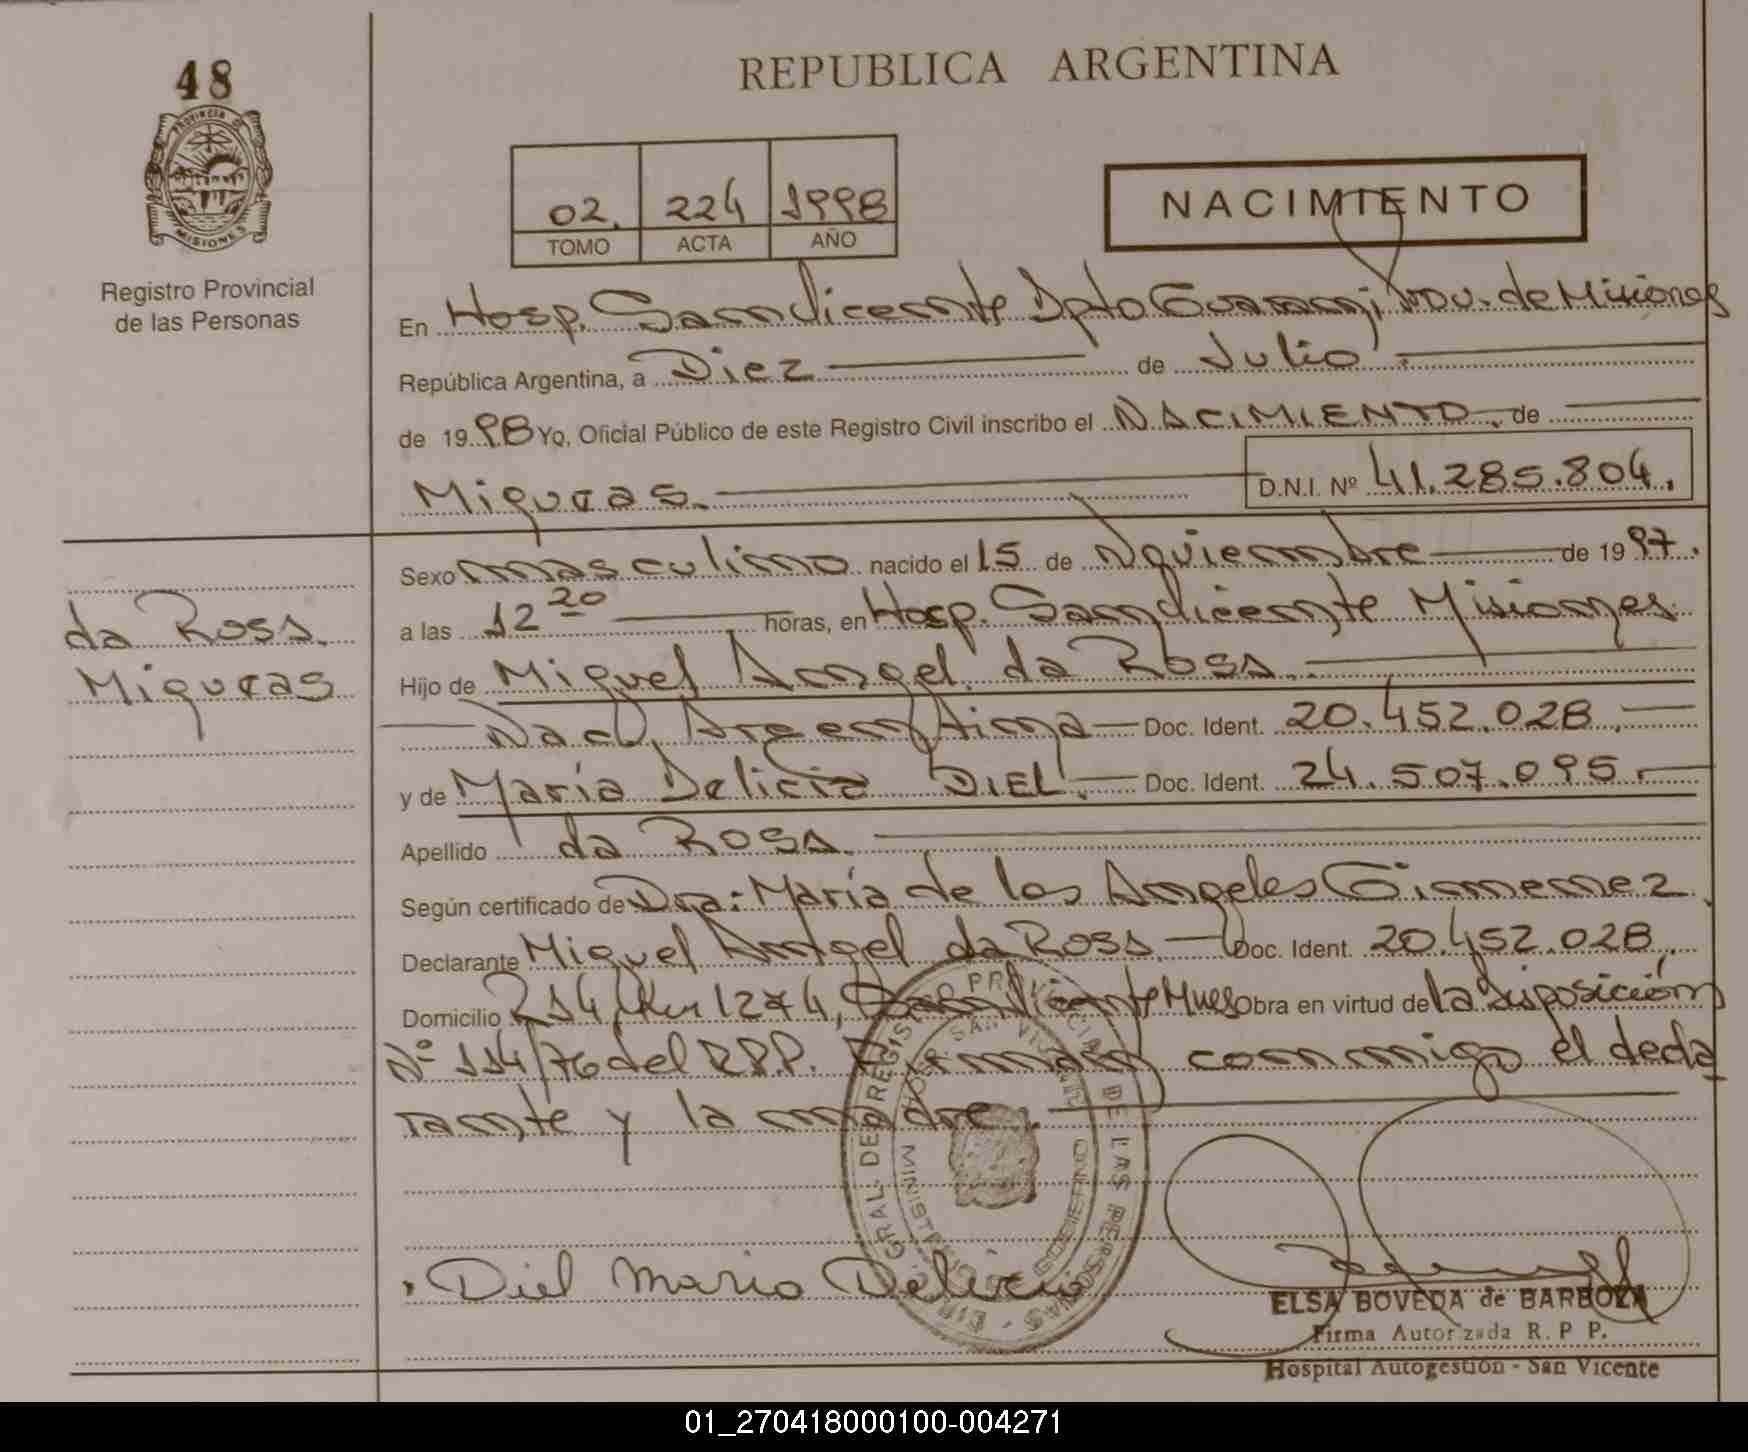 48
PROVINCIA DE
MISIONES
Registro Provincial
de las Personas
REPUBLICA ARGENTINA
02. 224 1998
TOMO ACTA AÑO
NACIMIENTO
En Hosp. San Vicente Dpto Guarani, Prov. de Misiones
República Argentina, a Diez de Julio
de 1998 Yo, Oficial Público de este Registro Civil inscribo el NACIMIENTO de
Miqueas. D.N.I. Nº 41.285.804.
Sexo masculino nacido el 15 de Noviembre de 1997.
a las 12 20 horas, en Hosp. San Vicente Misiones
da Rosa.
Miqueas
Hijo de Miguel Angel da Rosa.
Nac. Argentina Doc. Ident. 20.452.028.
y de María Delicia DIEL. Doc. Ident. 24.507.095.
Apellido da Rosa.
Según certificado de Dra: María de los Angeles Gimenez
Declarante Miguel Angel da Rosa Doc. Ident. 20.452.028.
Domicilio 214 Km 1274, San Vicente Mnes Obra en virtud de la disposición
Nº 114/76 del R.P.P. Firman conmigo el decla
rante y la madre.
DIR. GRAL. DE REGISTRO PROVINCIAL DE LAS PERSONAS
SAN VICENTE
GOBIERNO
Diel Maria Delicia
ELSA BOVEDA de BARBOZA
Firma Autorizada R. P P.
Hospital Autogestión - San Vicente
01_270418000100-004271